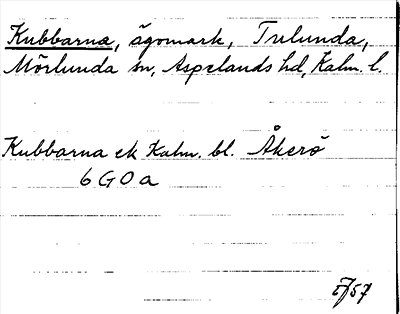 Kubbarna, ägomark, Trelunda,
Mörlunda sn, Aspelands hd, Kalm. l.
Kubbarna ek Kalm. bl. Åkerö
6 G O a